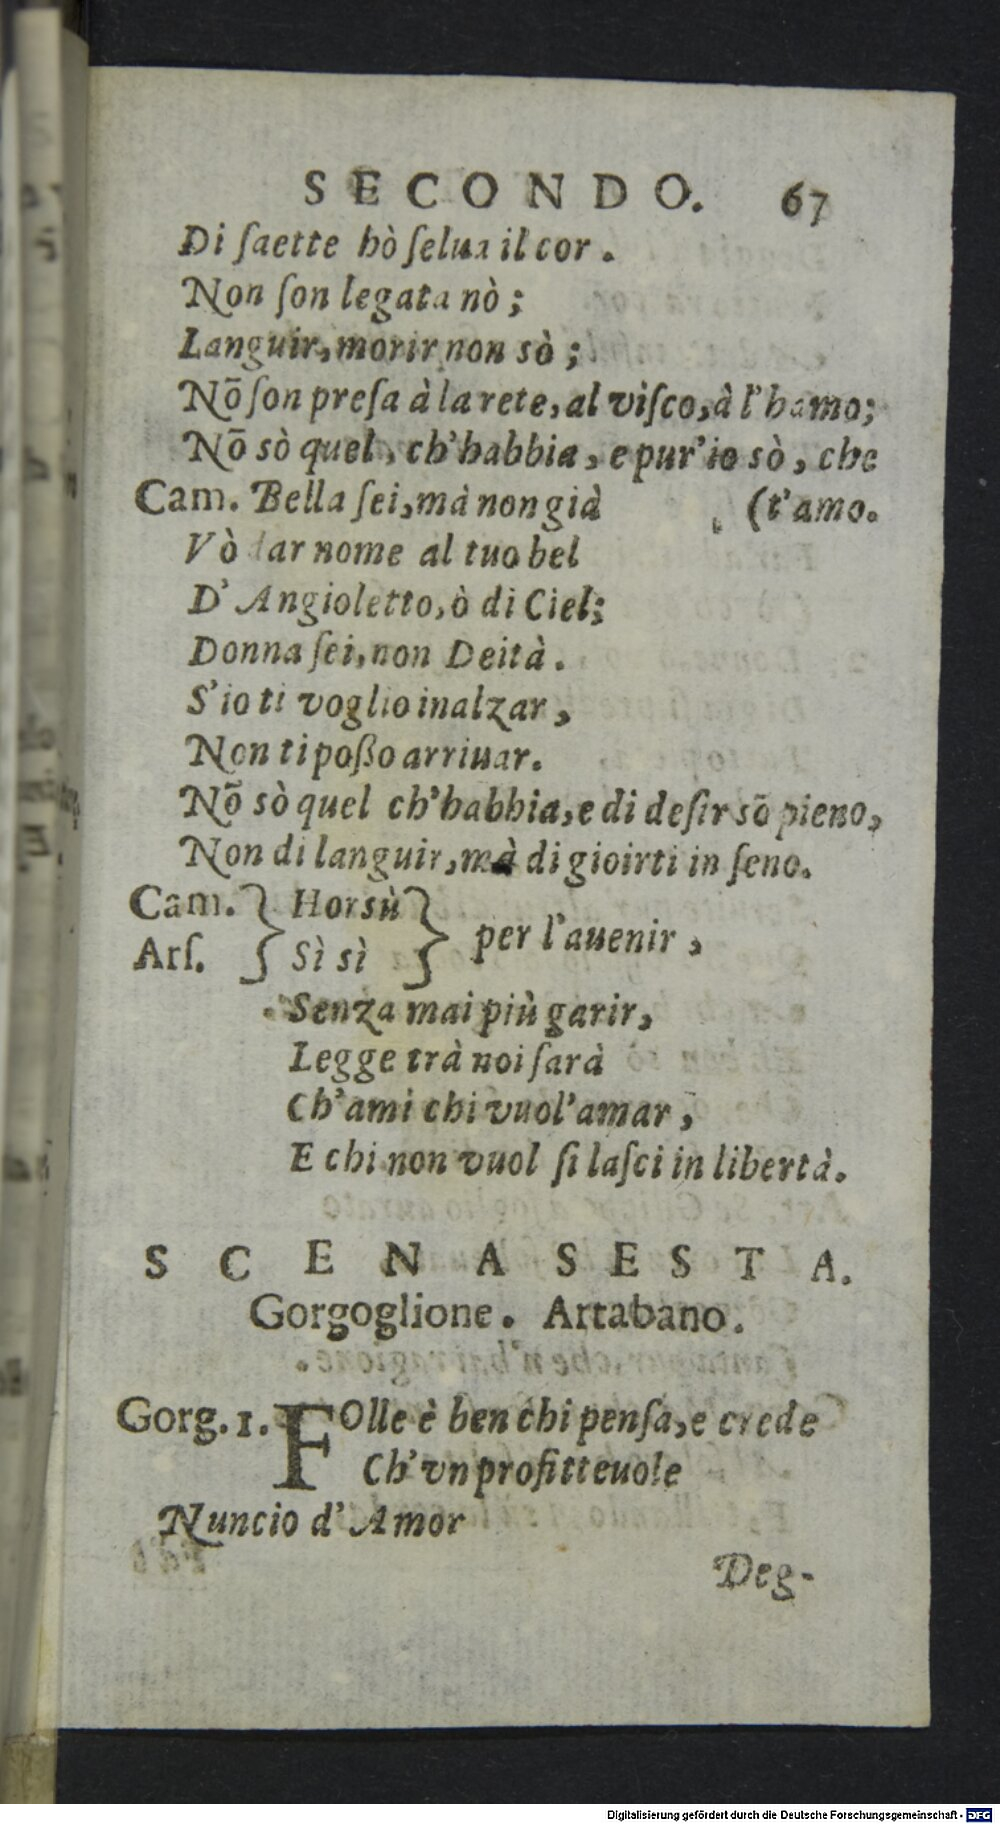 SECONDO. 67
Di ſaette hò ſelua il cor.
Non ſon legata nò;
Languir, morir non sò;
Nõ ſon preſa à la rete, al viſco, à l'hamo;
Nõ sò quel, ch'habbia, e pur'io sò, che
Cam. Bella ſei, mà non già (t'amo.
Vò dar nome al tuo bel
D'Angioletto, ò di Ciel;
Donna ſei, non Deità.
S'io ti voglio inalzar,
Non ti poßo arriuar.
Nõ sò quel ch'habbia, e di deſir sõ pieno,
Non di languir, mà di gioirti in ſeno.
Cam. } Horsù } per l'auenir,
Arſ. } Sì sì }
Senza mai più garir,
Legge trà noi ſarà
Ch'ami chi vuol'amar,
E chi non vuol ſi laſci in libertà.
SCENA SESTA.
Gorgoglione. Artabano.
Gorg. 1. FOlle è ben chi penſa, e crede
Ch'vn profitteuole
Nuncio d'Amor
Deg-
Digitalisierung gefördert durch die Deutsche Forschungsgemeinschaft - DFG